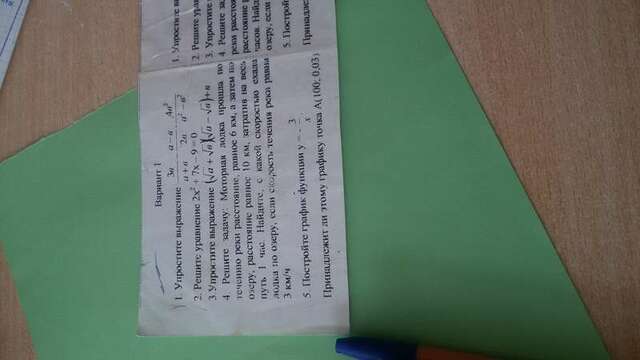 Вариант 1
1. Упростите выражение 3a/(a+n) · (a−n)/2n · 4n²/(a²−n²)
2. Решите уравнение 2x² + 7x − 9 = 0
3. Упростите выражение (√a + √n)(√a − √n) + n
4. Решите задачу: Моторная лодка прошла по
течению реки расстояние, равное 6 км, а затем по
озеру, расстояние равное 10 км, затратив на весь
путь 1 час. Найдите, с какой скоростью ехала
лодка по озеру, если скорость течения реки равна
3 км/ч
5. Постройте график функции y = − 3/x
Принадлежит ли этому графику точка A(100; 0,03)
1. Упростите
2. Решите ура
3. Упростите
4. Решите за
реки расстоя
расстояние р
часов. Найд
озеру, если
5. Построй
Принадлеж